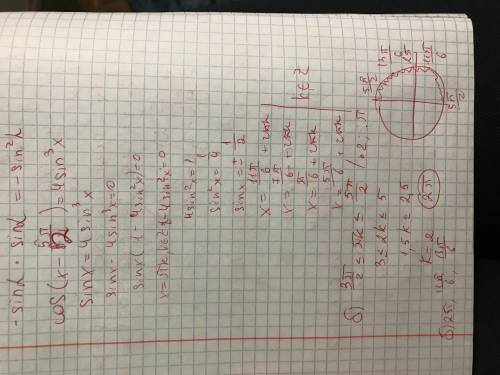 -sinα · sinα = -sin²α
cos(x - 5π/2) = 4sin³x
sinx = 4sin³x
sinx - 4sin³x = 0
sinx(1 - 4sin²x) = 0
4sin²x = 1
sin²x = 1/4
sinx = ± 1/2
x = 11π/6 + 2πk
x = 7π/6 + 2πk
x = π/6 + 2πk
x = 5π/6 + 2πk
k∈Z
б) 3π/2 ≤ πk ≤ 5π/2 / ·2 : π
3 ≤ 2k ≤ 5
1,5k ≤ 2,5
k = 2
2π
б) 2π, 11π/6, 13π/6
5π/2
13π/6
2π
11π/6
3π/2